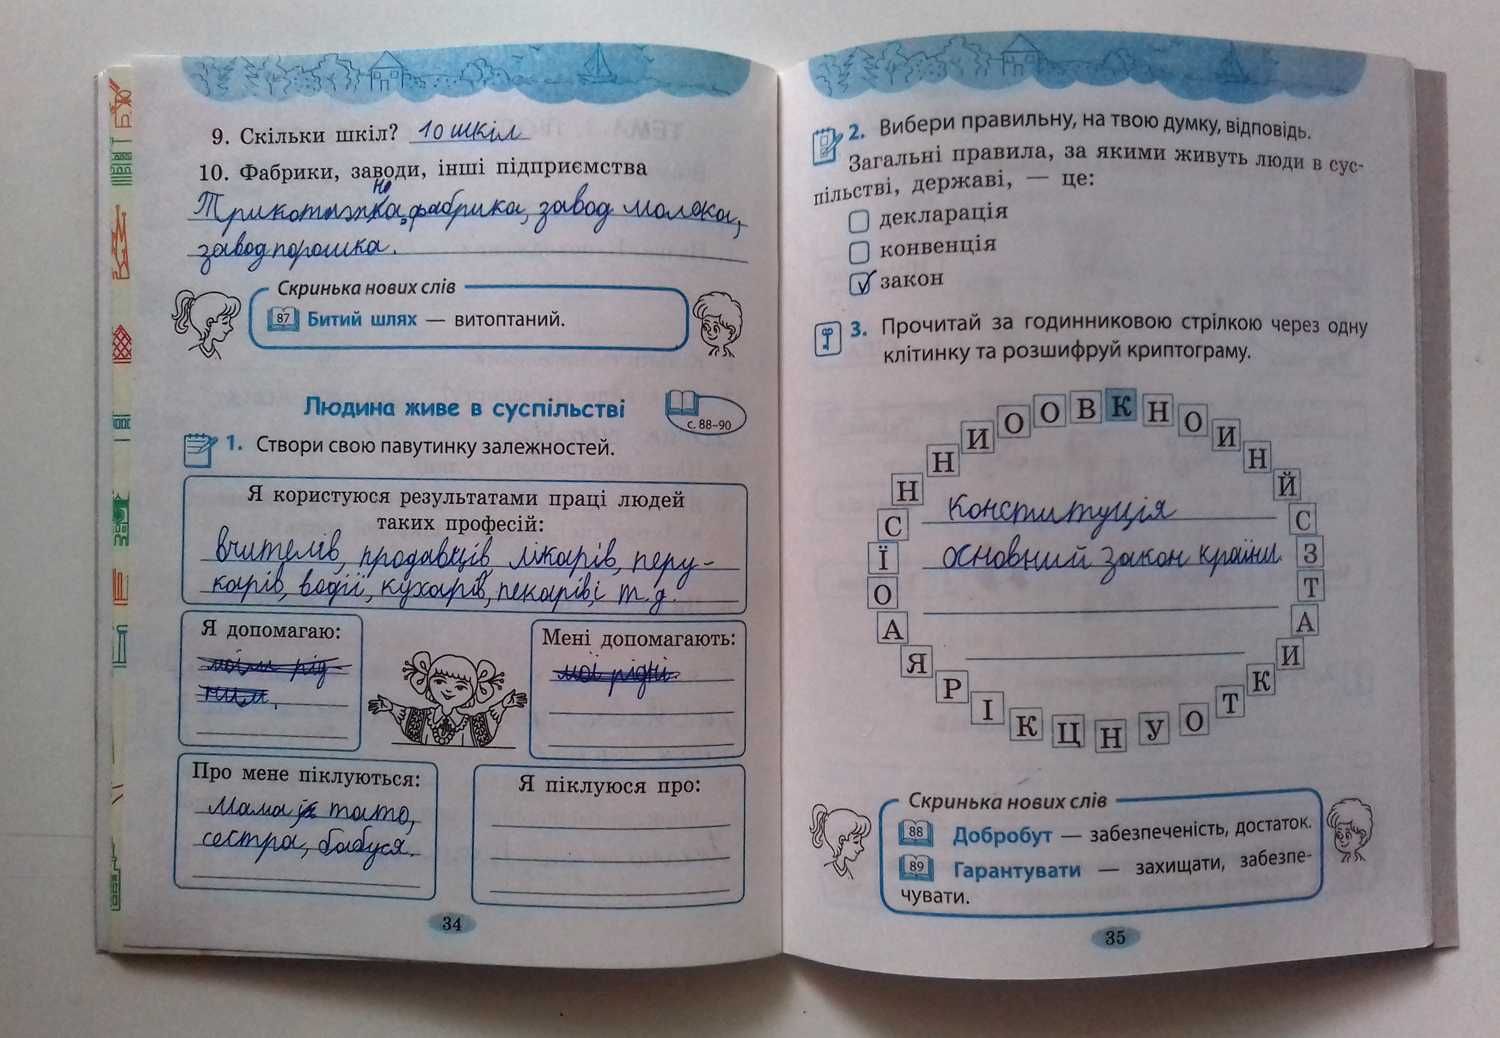 9. Скільки шкіл? 10 шкіл
10. Фабрики, заводи, інші підприємства
фабрика, завод молока,
завод порошка.
Скринька нових слів
87 Битий шлях — витоптаний.
Людина живе в суспільстві
с. 88–90
1. Створи свою павутинку залежностей.
Я користуюся результатами праці людей
таких професій:
вчителів, продавців, лікарів, перу-
карів, водіїї, кухарів, пекарів і т.д.
Я допомагаю:
моїм рід
ним.
Мені допомагають:
мої рідні
Про мене піклуються:
мама і тато,
сестра, бабуся.
Я піклуюся про:
34
2. Вибери правильну, на твою думку, відповідь.
Загальні правила, за якими живуть люди в сус-
пільстві, державі, — це:
декларація
конвенція
закон
3. Прочитай за годинниковою стрілкою через одну
клітинку та розшифруй криптограму.
К Н О И Н Й С З Т А И К Т О У Н Ц К І Р Я А О Ї С Н Н И О О В
Конституція
основний закон країни
Скринька нових слів
88 Добробут — забезпеченість, достаток.
89 Гарантувати — захищати, забезпе-
чувати.
35